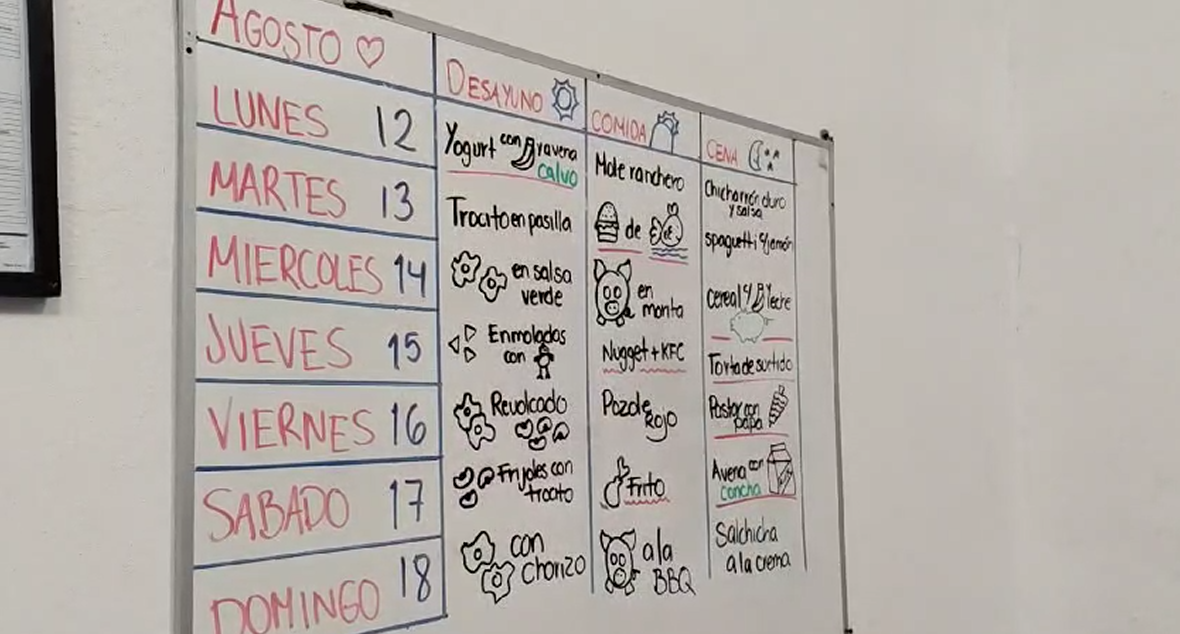 AGOSTO
DESAYUNO
COMIDA
CENA
LUNES 12
Yogurt con y avena
calvo
Mole ranchero
Chicharrón duro
y salsa
MARTES 13
Trocito en pasilla
de
spaguetti y jamón
MIERCOLES 14
en salsa
verde
en
monta
cereal y leche
JUEVES 15
Enmoladas
con
Nugget + KFC
Torta de surtido
VIERNES 16
Revolcado
Pozole
Rojo
Pastor con
papa
SABADO 17
Frijoles con
trocito
Frito
Avena con
concha
DOMINGO 18
con
chorizo
a la
BBQ
Salchicha
a la crema